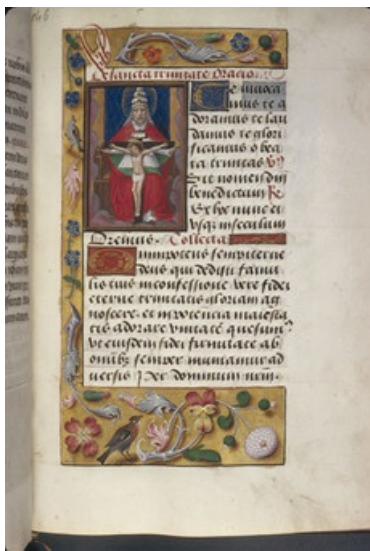 De sancta trinitate Oracio.
Te invoca
mus te a
doramus te lau
damus te glori
ficamus o bea
ta trinitas
Sit nomen dni
benedictum
Ex hoc nunc et
usqz in seculum
Oremus. Collecta
Omnipotens sempiterne
deus qui dedisti famu
lis tuis in confessione vere fidei
eterne trinitatis gloriam ag
noscere et in potencia maiesta
tis adorare unitatē quesum9
ut eiusdem fidei firmitate ab
omībz semper muniamur ad
uersis Per dominum nrm.